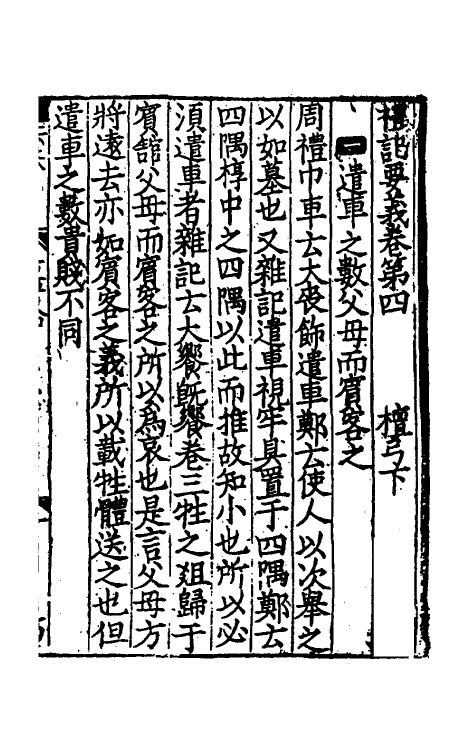 禮記要義卷第四 檀弓下
一 遣車之數父母而賓客之
周禮巾車云大喪飾遣車鄭云使人以次舉之
以如墓也又雜記遣車視牢具置于四隅鄭云
四隅椁中之四隅以此而推故知小也所以必
須遣車者雜記云大饗既饗卷三牲之俎歸于
賓舘父母而賓客之所以為哀也是言父母方
將遠去亦如賓客之義所以載牲體送之也但
遣車之數貴賤不同